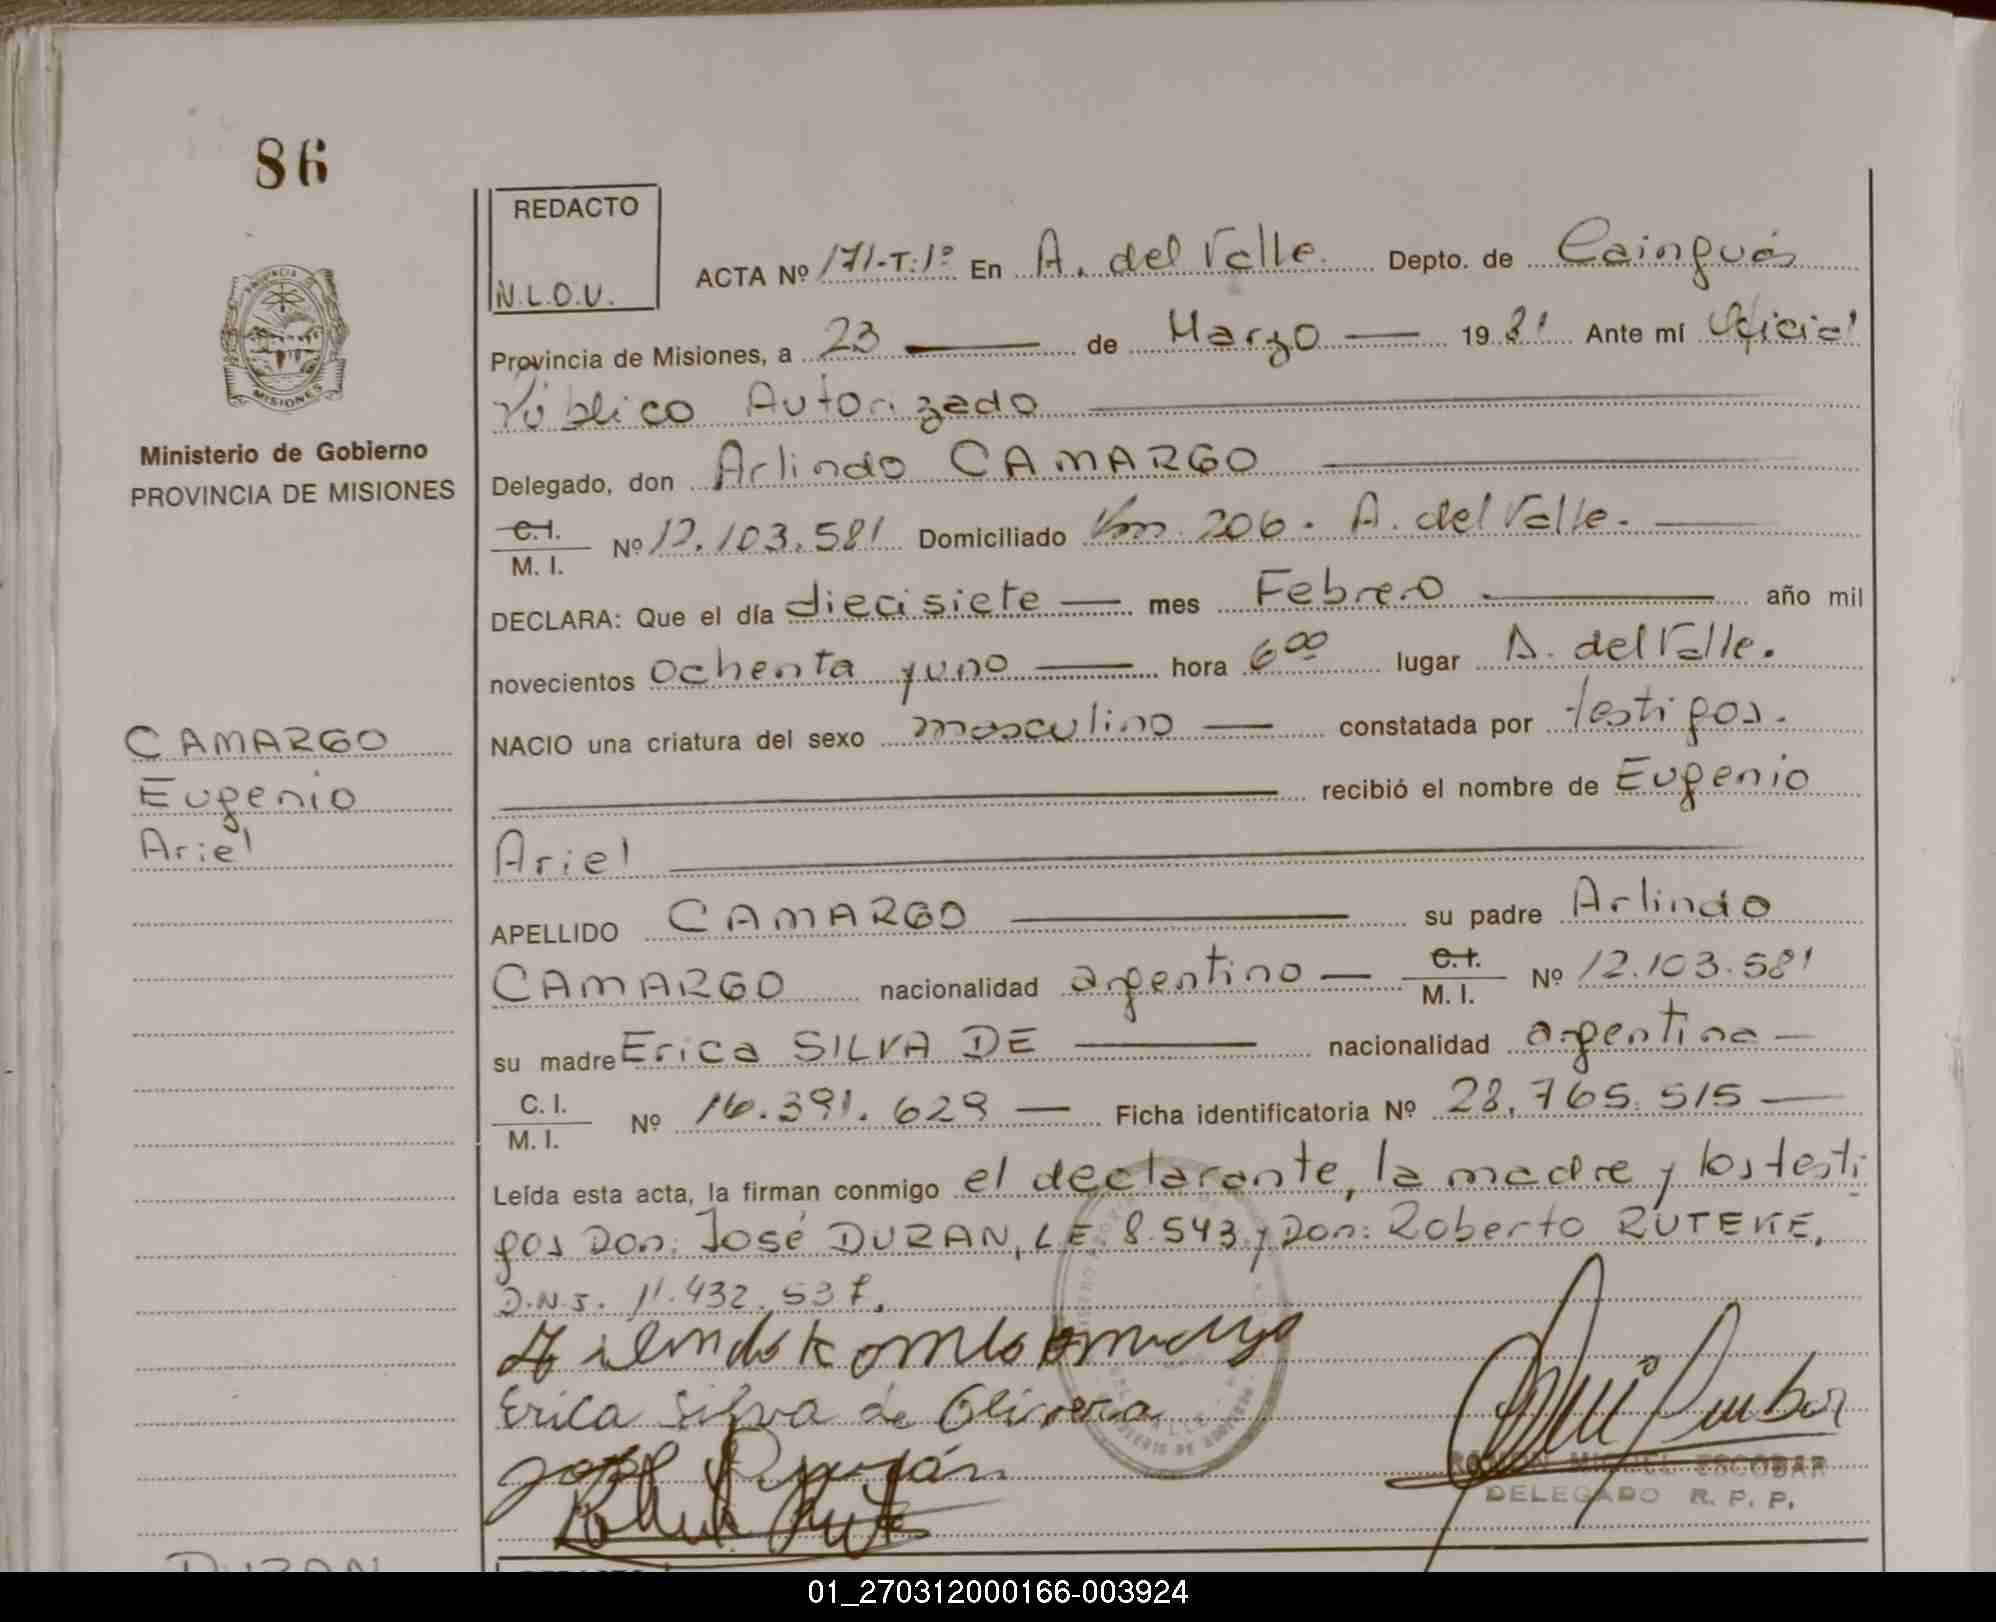 86
REDACTO
N.L.O.V.
ACTA Nº 171-T:1º En A. del Valle. Depto. de Cainguás
Provincia de Misiones, a 23 de Marzo 1981 Ante mí Oficial
Público Autorizado
Delegado, don Arlindo CAMARGO
C.I. M. I. Nº 12.103.581 Domiciliado Km. 206. A. del Valle.
DECLARA: Que el día diecisiete mes Febrero año mil
novecientos ochenta y uno hora 6 00 lugar A. del Valle.
NACIO una criatura del sexo masculino constatada por testigos.
recibió el nombre de Eugenio
Ariel
APELLIDO CAMARGO su padre Arlindo
CAMARGO nacionalidad argentino C.I. M. I. Nº 12.103.581
su madre Erica SILVA DE nacionalidad argentina
C. I. M. I. Nº 16.391.629 Ficha identificatoria Nº 28.765.515
Leída esta acta, la firman conmigo el declarante, la madre y los testi
gos Don: José DURAN, L.E. 8.543 y Don: Roberto RUTEKE,
D.N.I. 11.432.537.
Erica Silva de Olivera
José Durán
RAMON MIGUEL ESCOBAR
DELEGADO R. P. P.
PROVINCIA
MISIONES
Ministerio de Gobierno
PROVINCIA DE MISIONES
CAMARGO
Eugenio
Ariel
DURAN
01_270312000166-003924